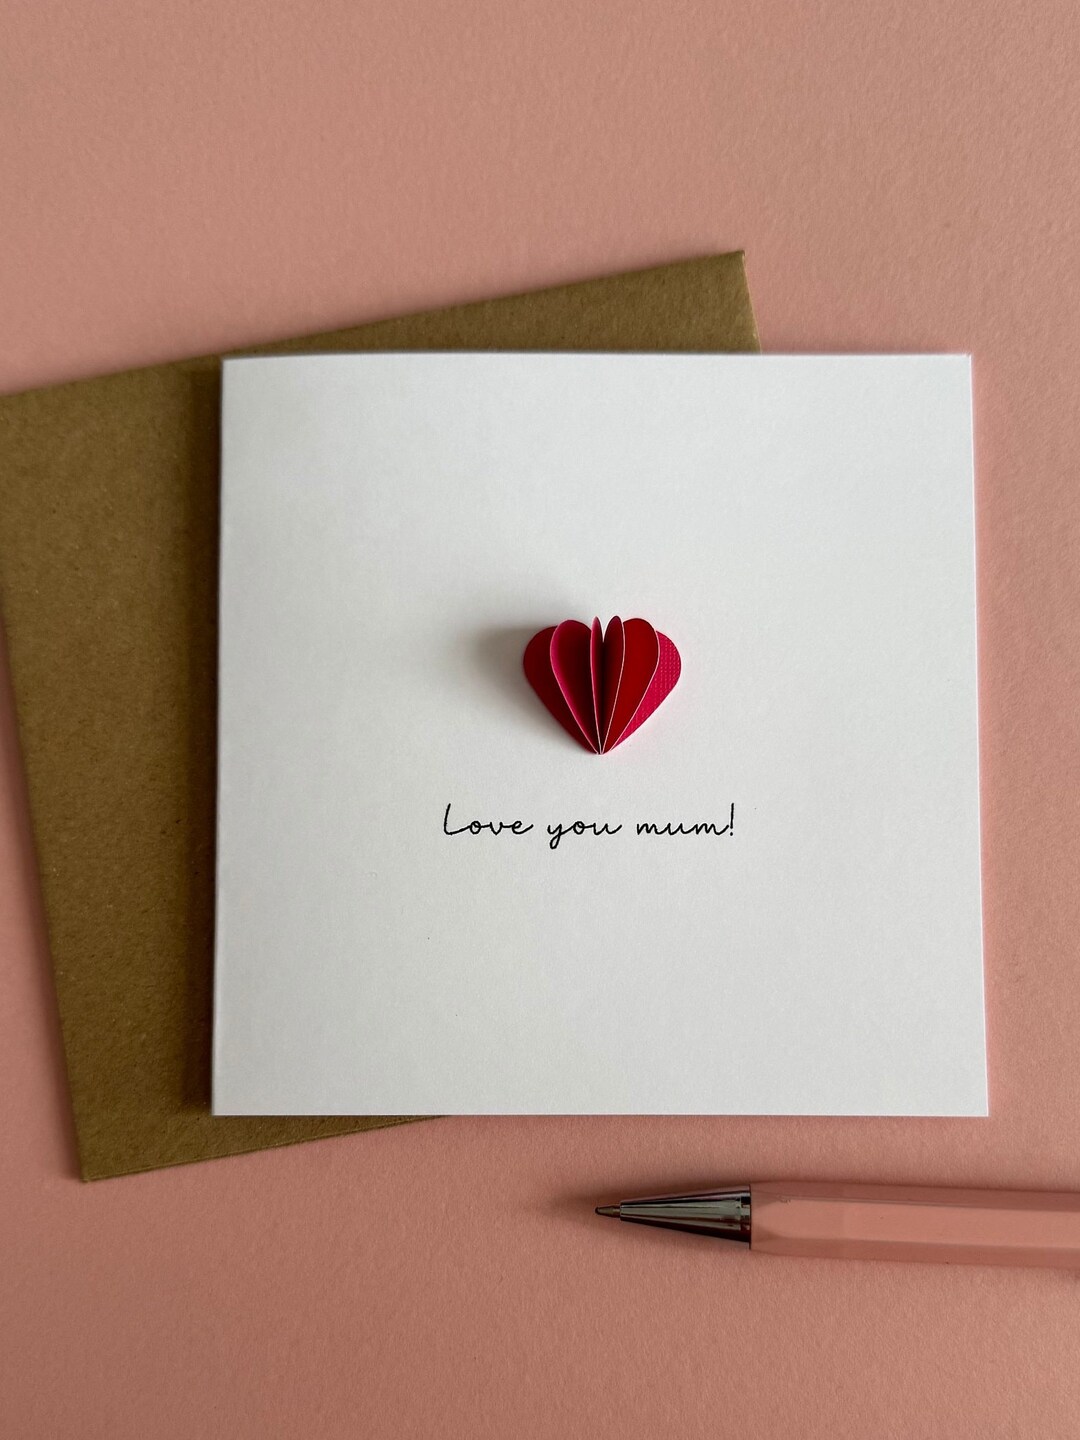 Love you mum!